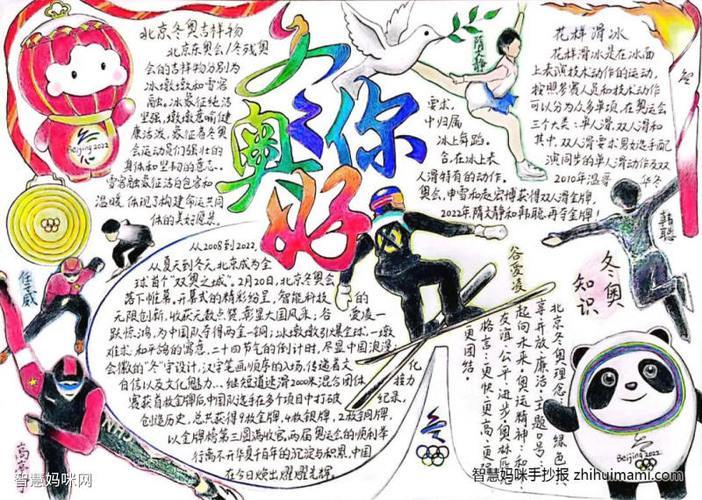 冬奥你好
北京冬奥吉祥物
北京冬奥会/冬残奥
会的吉祥物分别为
冰墩墩和雪容
融。冰象征纯洁
坚强,墩墩意喻健
康活泼,象征着冬奥
会运动员们强壮的
身体和坚韧的意志。
雪容融象征洁白包容和
温暖,体现了构建命运共同
体的美好愿景。
Beijing 2022
隋文静
花样滑冰
花样滑冰是在冰面
上表演技术动作的运动,
按照参赛人员和技术动作
可以分为众多单项,在奥运会
三个大类:单人滑,双人滑和
其中,双人滑要求男女选手配
演同步的单人滑动作及双
2010年温哥华冬
要求。
中归属
冰上舞蹈。
合,在冰上表
人滑特有的动作。
奥会,申雪和赵宏博获得双人滑金牌,
2022年隋文静和韩聪,再夺金牌!
韩聪
任子威
从2008到2022
从夏天到冬天,北京成为全
球首个“双奥之城”。2月20日,北京冬奥会
落下帷幕,开幕式的精彩纷呈,智能科技的
无限创新,收获无数点赞,彰显大国风采;谷爱凌一
跃惊鸿,为中国队夺得两金一铜;冰墩墩引爆全球,一墩
难求,和平鸽的寓意,二十四节气的倒计时,尽显中国浪漫;
会徽的“冬”字设计,汉字笔画顺序的入场,传递着文化
自信以及文化魅力...继短道速滑2000米混合团体接力
赛获首枚金牌后中国队选手在多个项目中打破纪录,
创造历史,总共获得9枚金牌,4枚银牌,2枚铜牌,
以金牌榜第三圆满收官,两届奥运会的顺利举
行离不开华夏千百年的沉淀与积累,中国
在今日焕出耀耀光辉。
谷爱凌
高亭宇
冬奥
知识
北京冬奥理念:绿色、共
享、开放、廉洁;主题口号:一
起向未来;奥运精神:和平、
友谊、公平、进步;奥林匹克
格言:更快、更高、更强、
更团结。
Beijing 2022
智慧妈咪网
智慧妈咪手抄报 zhihuimami.com